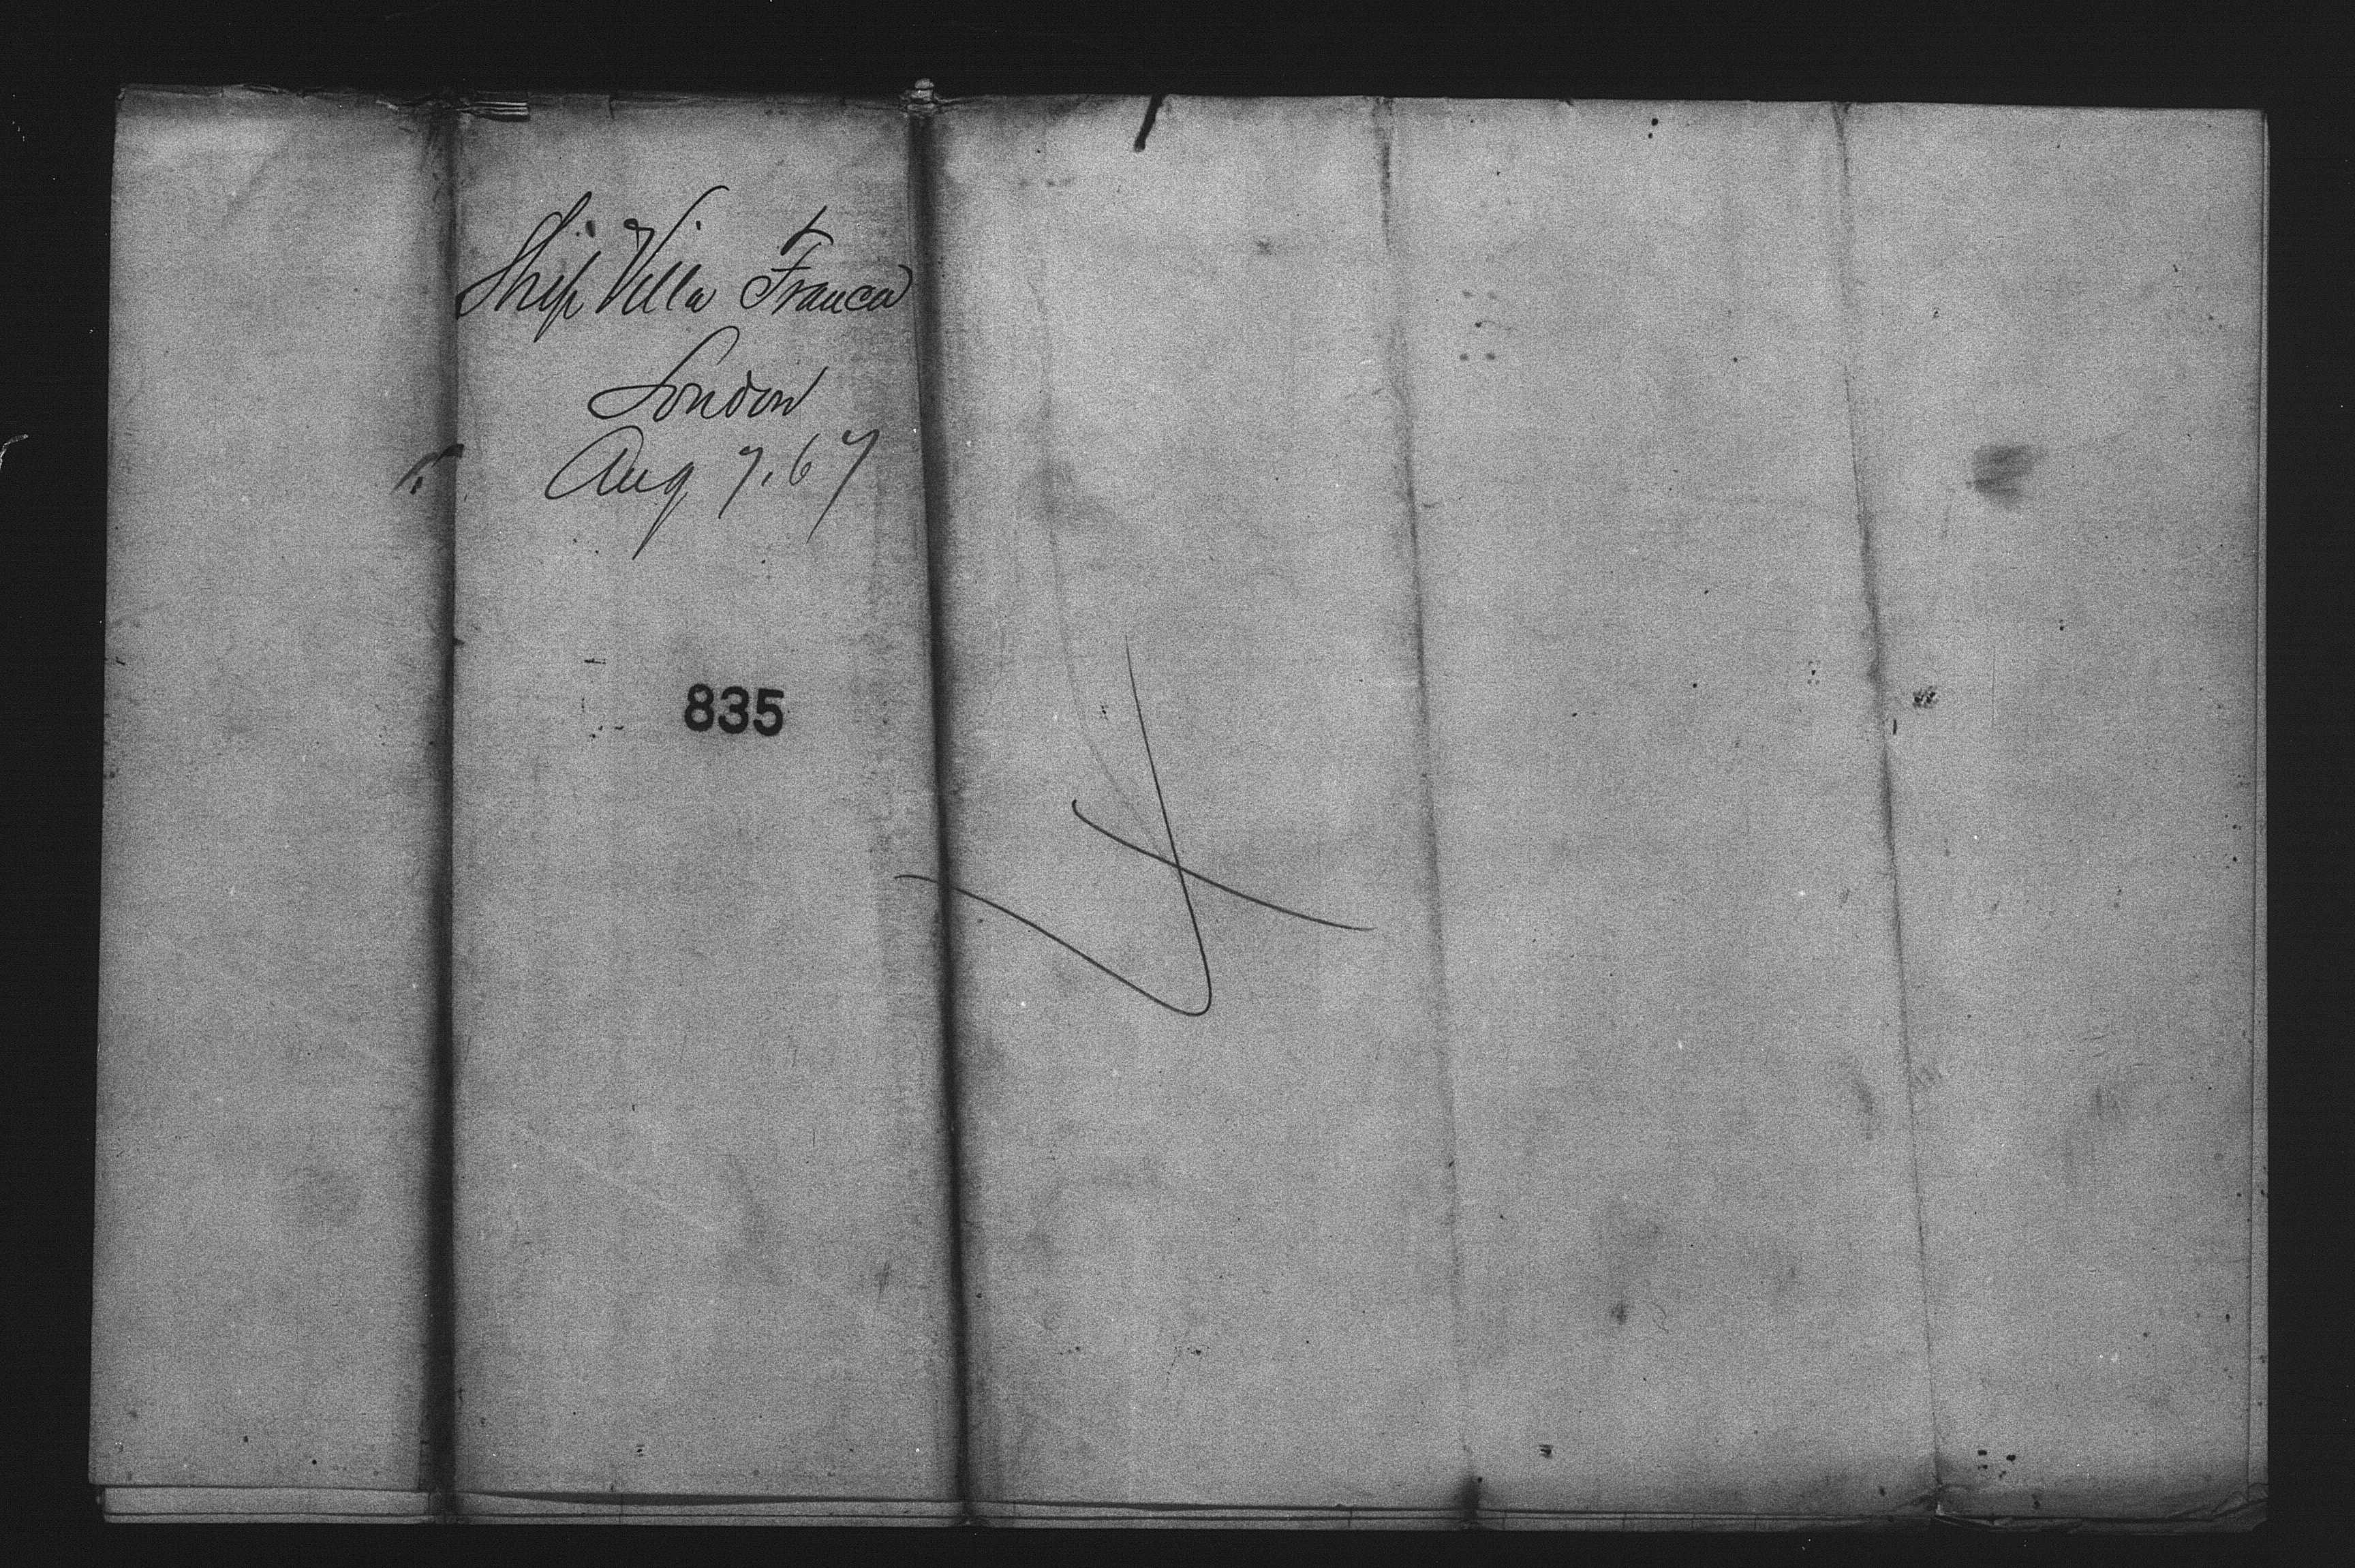 Ship Villa Franca
London
Aug 7, 67
835